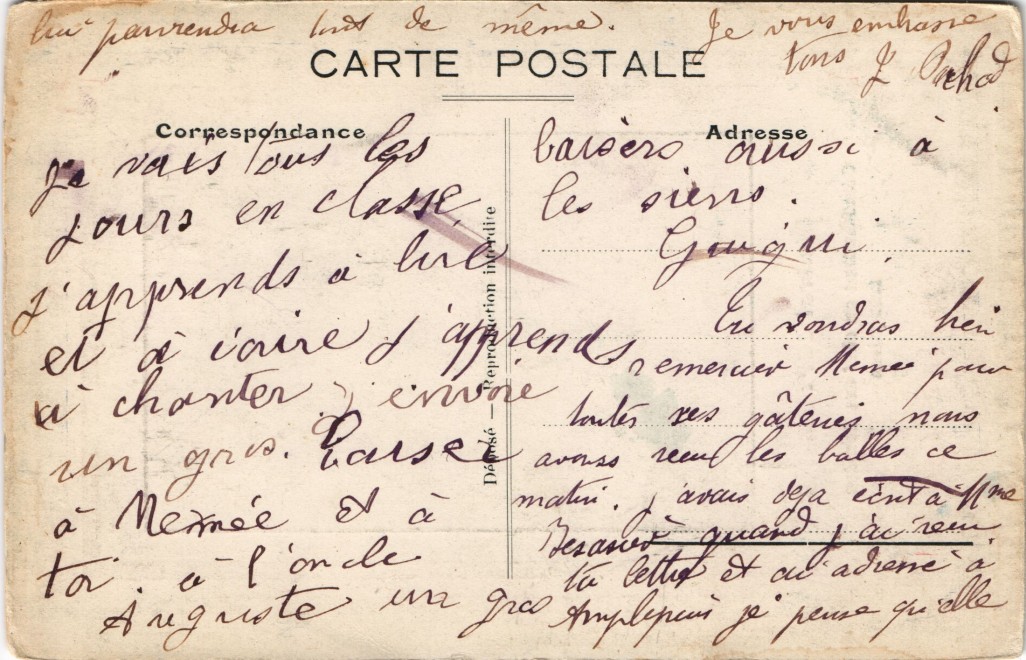 lui parviendra tout de même. Je vous embrasse
tous J
CARTE POSTALE
Correspondance
Je vais tous les
jours en classe
j'apprends à lire
et à écrire j'apprends
à chanter j envoie
un gros. baise
à Memée et à
toi à l'oncle
Auguste un gros
Déposé — Reproduction interdite
Adresse
baisers aussi à
les siens.
Tu voudras bien
remercier Memée pour
toutes ses gâteries nous
avons reçu les balles ce
matin. j'avais deja écrit à Mme
quand j'ai reçu
ta lettre et ai adressé à
Amplepuis je pense qu'elle